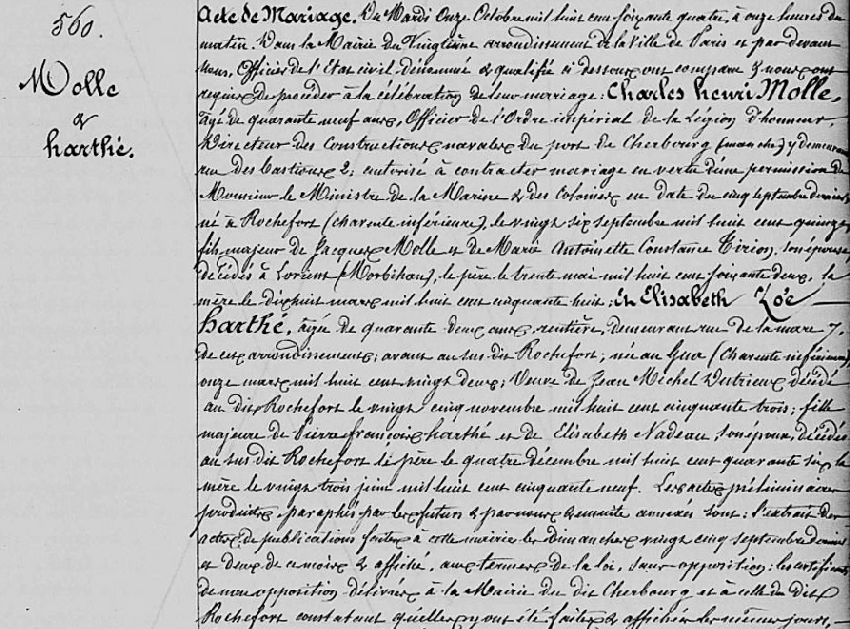 560.
Molle
&
harthé.
Acte de Mariage. Du Mardi Onze Octobre mil huit cent soixante quatre, à onze heures du
matin. Dans la Mairie du Vingtième arrondissement de la Ville de Paris et par devant
Nous, Officier de l'Etat civil, dénommé & qualifié ci dessous ont comparu & nous ont
requis de procéder à la célébration de leur mariage : Charles henri Molle,
âgé de quarante neuf ans, Officier de l'Ordre impérial de la Légion d'honneur,
Directeur des Constructions navales du port de Cherbourg (manche) y demeurant
rue des bastions 2; autorisé à contracter mariage en vertu d'une permission de
Monsieur le Ministre de la Marine & des Colonies en date du cinq septembre dernier
né à Rochefort (charente inférieure), le vingt six septembre mil huit cent quinze,
fils majeur de Jacques Molle et de Marie Antoinette Constance Tirion, son épouse,
décédés à Lorient (Morbihan), le père le trente mai mil huit cent soixante deux, la
mère le dix huit mars mil huit cent cinquante huit; Et Elisabeth Zoé
harthé, âgée de quarante deux ans, rentière, demeurant rue de la mare 7.
de cet arrondissement; avant au sus dit Rochefort; née au (charente inférieure),
onze mars mil huit cent vingt deux; Veuve de Jean Michel Dutrieux décédé
au dit Rochefort le vingt cinq novembre mil huit cent cinquante trois; fille
majeure de Pierre françois harthé et de Elisabeth Nadeau, son épouse, décédés
au sus dit Rochefort le père le quatre décembre mil huit cent quarante six, la
mère le vingt trois juin mil huit cent cinquante neuf. Les actes préliminaires
produits, paraphés par les futurs & par nous & ensuite annexés sont : l'extrait des
actes de publications faites à cette mairie les Dimanches vingt cinq septembre dernier
et deux de ce mois & affiché, aux termes de la loi, sans opposition; les certificats
de non opposition délivrés à la Mairie du dit Cherbourg et à celle du dit
Rochefort constatant qu'elles y ont été faites & affichées les mêmes jours,